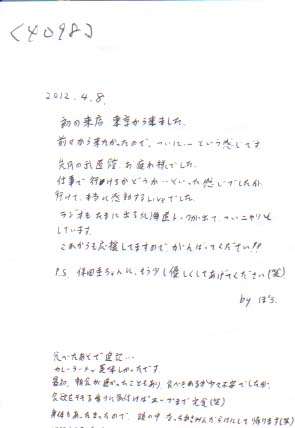 <4098>
2012.4.8.
初の来店 東京から来ました。
前々から来たかったので、ついに…という感じです
先月の武道館、お疲れ様でした。
仕事で行けるかどうか…といった感じでしたが、
行けて、本当に感動するLiveでした。
ラジオもたまに出る北海道トークが出て、ついニヤリと
しています。
これからも応援してますのでがんばってください!!
P.S. 保田圭ちゃんに、もう少し優しくしてあげてください(笑)
by ほ's.
食べたあとで追記…
カレーラーメン 美味しかったです。
最初、朝食が遅かったこともあり 食べきれるか少々不安でしたが、
気付けばスープまで完食(笑)
身体もあったまったので、
帰ります(笑)